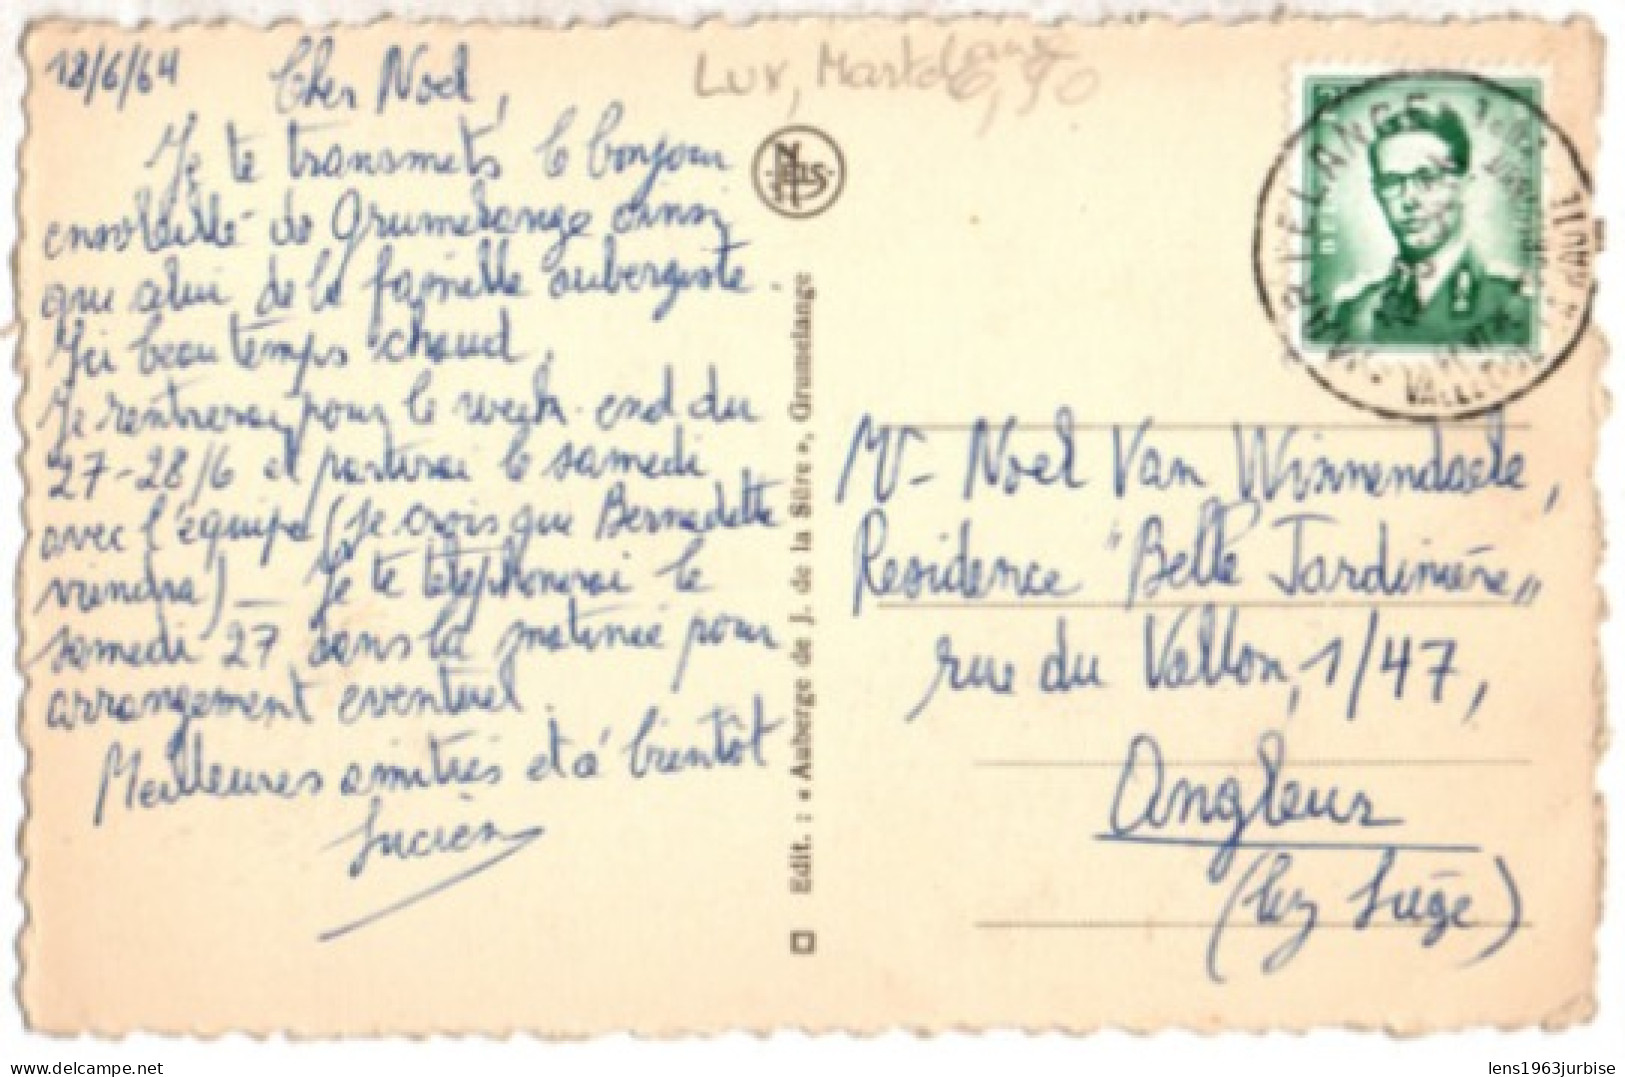 18/6/64
Cher Noel,
Je te transmets le bonjour
ensoleillé de Grumelange ainsi
que celui de la famille aubergiste.
Ici beau temps chaud.
Je rentrerai pour le week-end du
27-28/6 et partirai le samedi
avec l'équipe (je crois que Bernadette
viendra) – Je te telephonerai le
samedi 27 dans la matinée pour
arrangement eventuel.
Meilleures amitiés et à bientôt
Lucien
Lux, Martelange
6,50
Edit. : « Auberge de J. de la Sûre », Grumelange
MARTELANGE
Mr - Noel Van Winnendaele,
Residence "Belle Jardinière"
rue du Vallon, 1/47,
Angleur
(lez Liège)
delcampe.net
lens1963jurbise